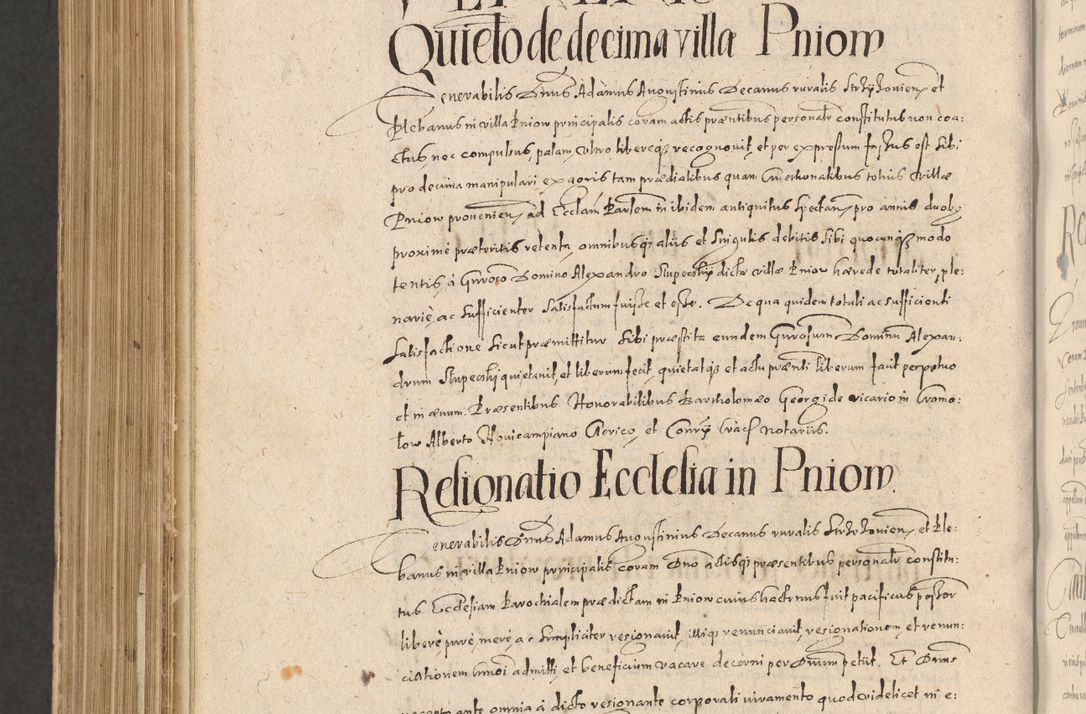 Quietõ de decima villa Pniow
Venerabilis Dnus Adamus Augustinus Decanus ruralis Strzyzovien, et
Plebanus in villa Pniow principalis coram actis præntibus personalr constitutus non coa-
ctus, nec compulsus, palam, ultro libereqz recognovit, et per expressum fassus est sibi
pro decima manipulari ex agris tam prædialibus quam Cmethonalibus totius villæ
Pniow provenien, ad Ecclam Parlem in ibidem antiquitus spectan, pro annis duoby
proxime præteritis retenta, omnibusqz aliis et singulis debitis sibi quocunqz modo
tentis, à Gnroso Domino Alexandro Slupecky dictæ villæ Pniow hærede totaliter, ple-
nariè, ac sufficienter satisfactum fuisse et esse. De qua quidem totali ac sufficienti
satisfactione sicut præmittitur sibi præstita eundem Gnrosum Dominum Alexan-
drum Slupecky quietavit, et liberum fecit, quietatqz et actu prænti liberum facit perpetuo
et in ævum. Præsentibus Honorabilibus Bartholomæo Georgide vicario in Cromo-
low Alberto Novicampiano Clerico, et notariis.
Resignatio Ecclesia in Pniow.
Venerabilis Dnus Adamus Augustinus Decanus ruralis Strzyzovien, et Ple-
banus in villa Pniow principalis coram Dno actisqz præsentibus personalr constitu-
tus Ecclesiam Parochialem prædictam in Pniow cuius hactenus fuit pacificus possor
liberè, purè, merè, ac simpliciter resignavit, illiqz renunciavit, resignationem et renun-
ciationem hmoi admitti et beneficium vacare decerni per Dnum petiit. Et Dnus
recepto ante omnia à dicto resignante corporali iuramento quod videlicet in e-